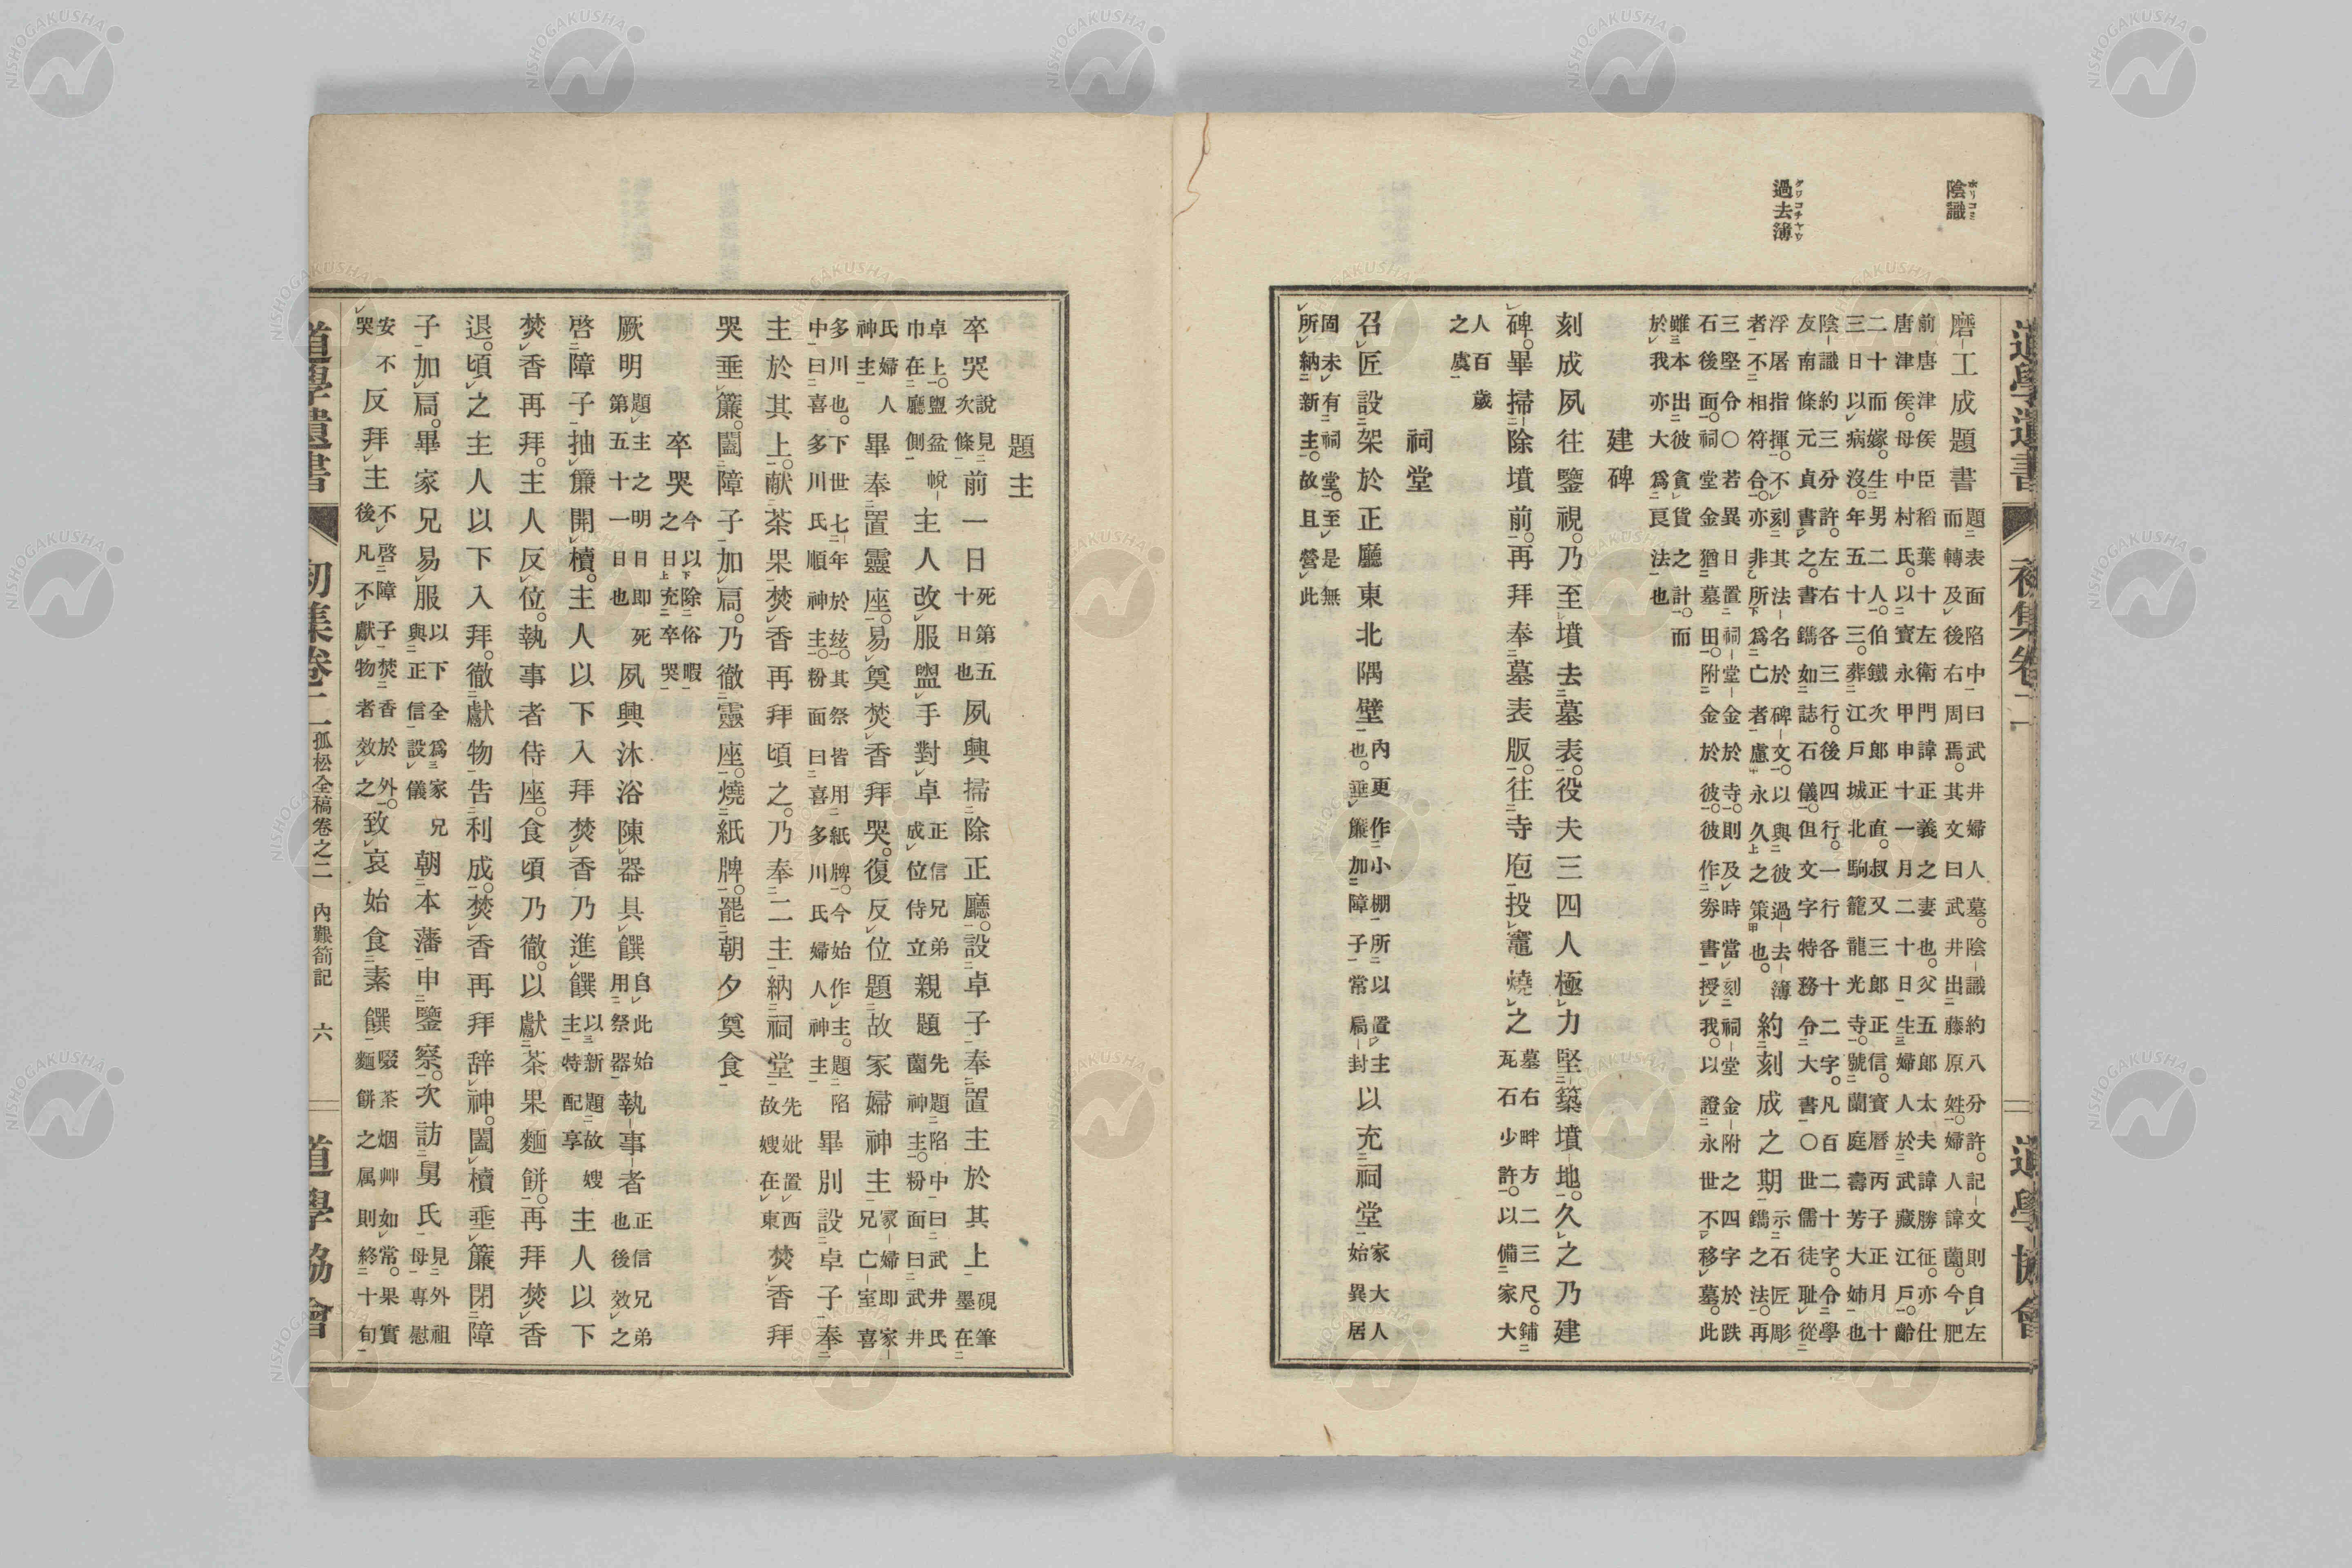 陰識
ホリコミ
過去簿
クワコチヤウ
道學遺書 初集卷二 道學協會
磨工成題書
題表面陷中曰武井婦人墓。陰識約八分許。記文則自左
而轉及後右周焉。其文曰武井出藤原姓。婦人諱薗。今肥
前唐津侯臣稻葉十左衛門諱正義之妻也。父五郎太夫諱勝征。亦仕
唐津侯。母中村氏。以寶永甲申十一月二十日生婦人於武藏江戶。齡
二十而嫁。生男二人。伯鐵次郎正直。叔又三郎正信。寶曆丙子正月十
三日以病沒。年五十三。葬江戶城北駒籠龍光寺。號蘭庭壽芳大姉也
陰識約三分許。左右各三行。後四行。一行各十二字。凡百二十字。令學
友南條元貞書之。書鐫如誌石儀。但文字特務令大書〇世儒徒耻從
浮屠指揮。不刻其法名於碑文。以與彼過去簿
者不相符合。亦非所爲亡者慮永久之策也。
約刻成之期
示石匠彫
鐫之法。再
三堅令〇若異日置祠堂金於寺。則及時當刻祠堂金附之四字於趺
石後面。祠堂金猶墓田。附金於彼。彼作券書授我。以證永世不移墓。此
雖本出彼貪貨之計。而
於我亦大爲良法也
建碑
刻成夙往鑒視。乃至墳去墓表。役夫三四人極力堅築墳地。久之乃建
碑。畢掃除墳前。再拜奉墓表版。往寺庖投竈燒之
墓右畔方二三尺。鋪
瓦石少許。以備家大
人百歲
之虞
祠堂
召匠設架於正廳東北隅壁
內更作小棚所以置主
也。垂簾加障子常扃封
以充祠堂
家大人
始異居
固未有祠堂。至是無
所納新主。故且營此
題主
卒哭
說見
次條
前一日
死第五
十日也
夙興掃除正廳。設卓子奉置主於其上
硯筆
墨在
卓上。盥盆帨
巾在廳側
主人改服盥手對卓
正信兄弟
成位侍立
親題
先題陷中曰武井氏
薗神主。粉面曰武井
氏婦人
神主
畢奉置靈座。易奠焚香拜哭。復反位題故家婦神主
冢婦即家
兄亡室喜
多川也。下世七年於玆。其祭皆用紙牌。今始作主。題陷
中曰喜多川氏順神主。粉面曰喜多川氏婦人神主
畢別設卓子奉
主於其上。献茶果焚香再拜頃之。乃奉二主納祠堂
先妣置西
故嫂在東
焚香拜
哭垂簾。闔障子加扃。乃徹靈座。燒紙牌。罷朝夕奠食
卒哭
今以除俗暇
之日充卒哭
厥明
題主之明日即死
第五十一日也
夙興沐浴陳器具饌
自此始
用祭器
執事者
正信兄弟
也後效之
啓障子抽簾開櫝。主人以下入拜焚香乃進饌
以新題故嫂
主特配享
主人以下
焚香再拜。主人反位。執事者侍座。食頃乃徹。以獻茶果麵餅。再拜焚香
退。頃之主人以下入拜。徹獻物告利成。焚香再拜辞神。闔櫝垂簾閉障
子加扃。畢家兄易服
以下全爲家兄
與正信設儀
朝本藩申鑒察。次訪舅氏
見外祖
母專慰
安不
哭
反拜主
不啓障子焚香於外。
後凡不獻物者效之
致哀始食素饌
啜茶烟艸如常。果實
麵餅之属則終十旬
道學遺書 初集卷二 孤松全稿卷之二 內艱箚記 六 道學協會